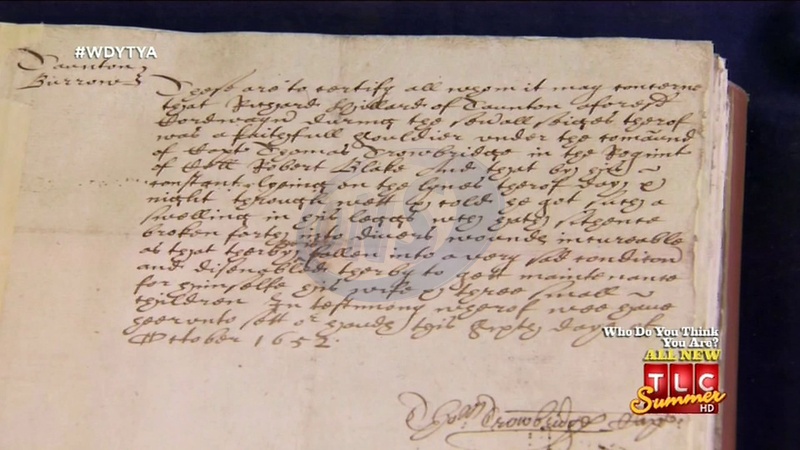 #WDYTYA
Taunton
Burrow
These are to certify all whom it may concerne
that Richard Hillard of Taunton aforesd
Cordwayner during the sev'all seiges therof
was a faithfull souldier under the comaund
of Capt Thomas Trowbridge in the Regimt
of Coll Robert Blake And that by his
constant lyeing on the lynes therof day &
night through wett & cold he got such a
swelling in his leggs wch hath sithence
broken forth into divers wounds incureable
as that therby fallen into a very sad condicon
and disenabled therby to gett maintenance
for himselfe his wife & three small
children In testimony wherof wee have
heerunto sett or hands this day
October 1652.
Tho Trowbridge
Who Do You Think
You Are?
ALL NEW
TLC
Summer
HD